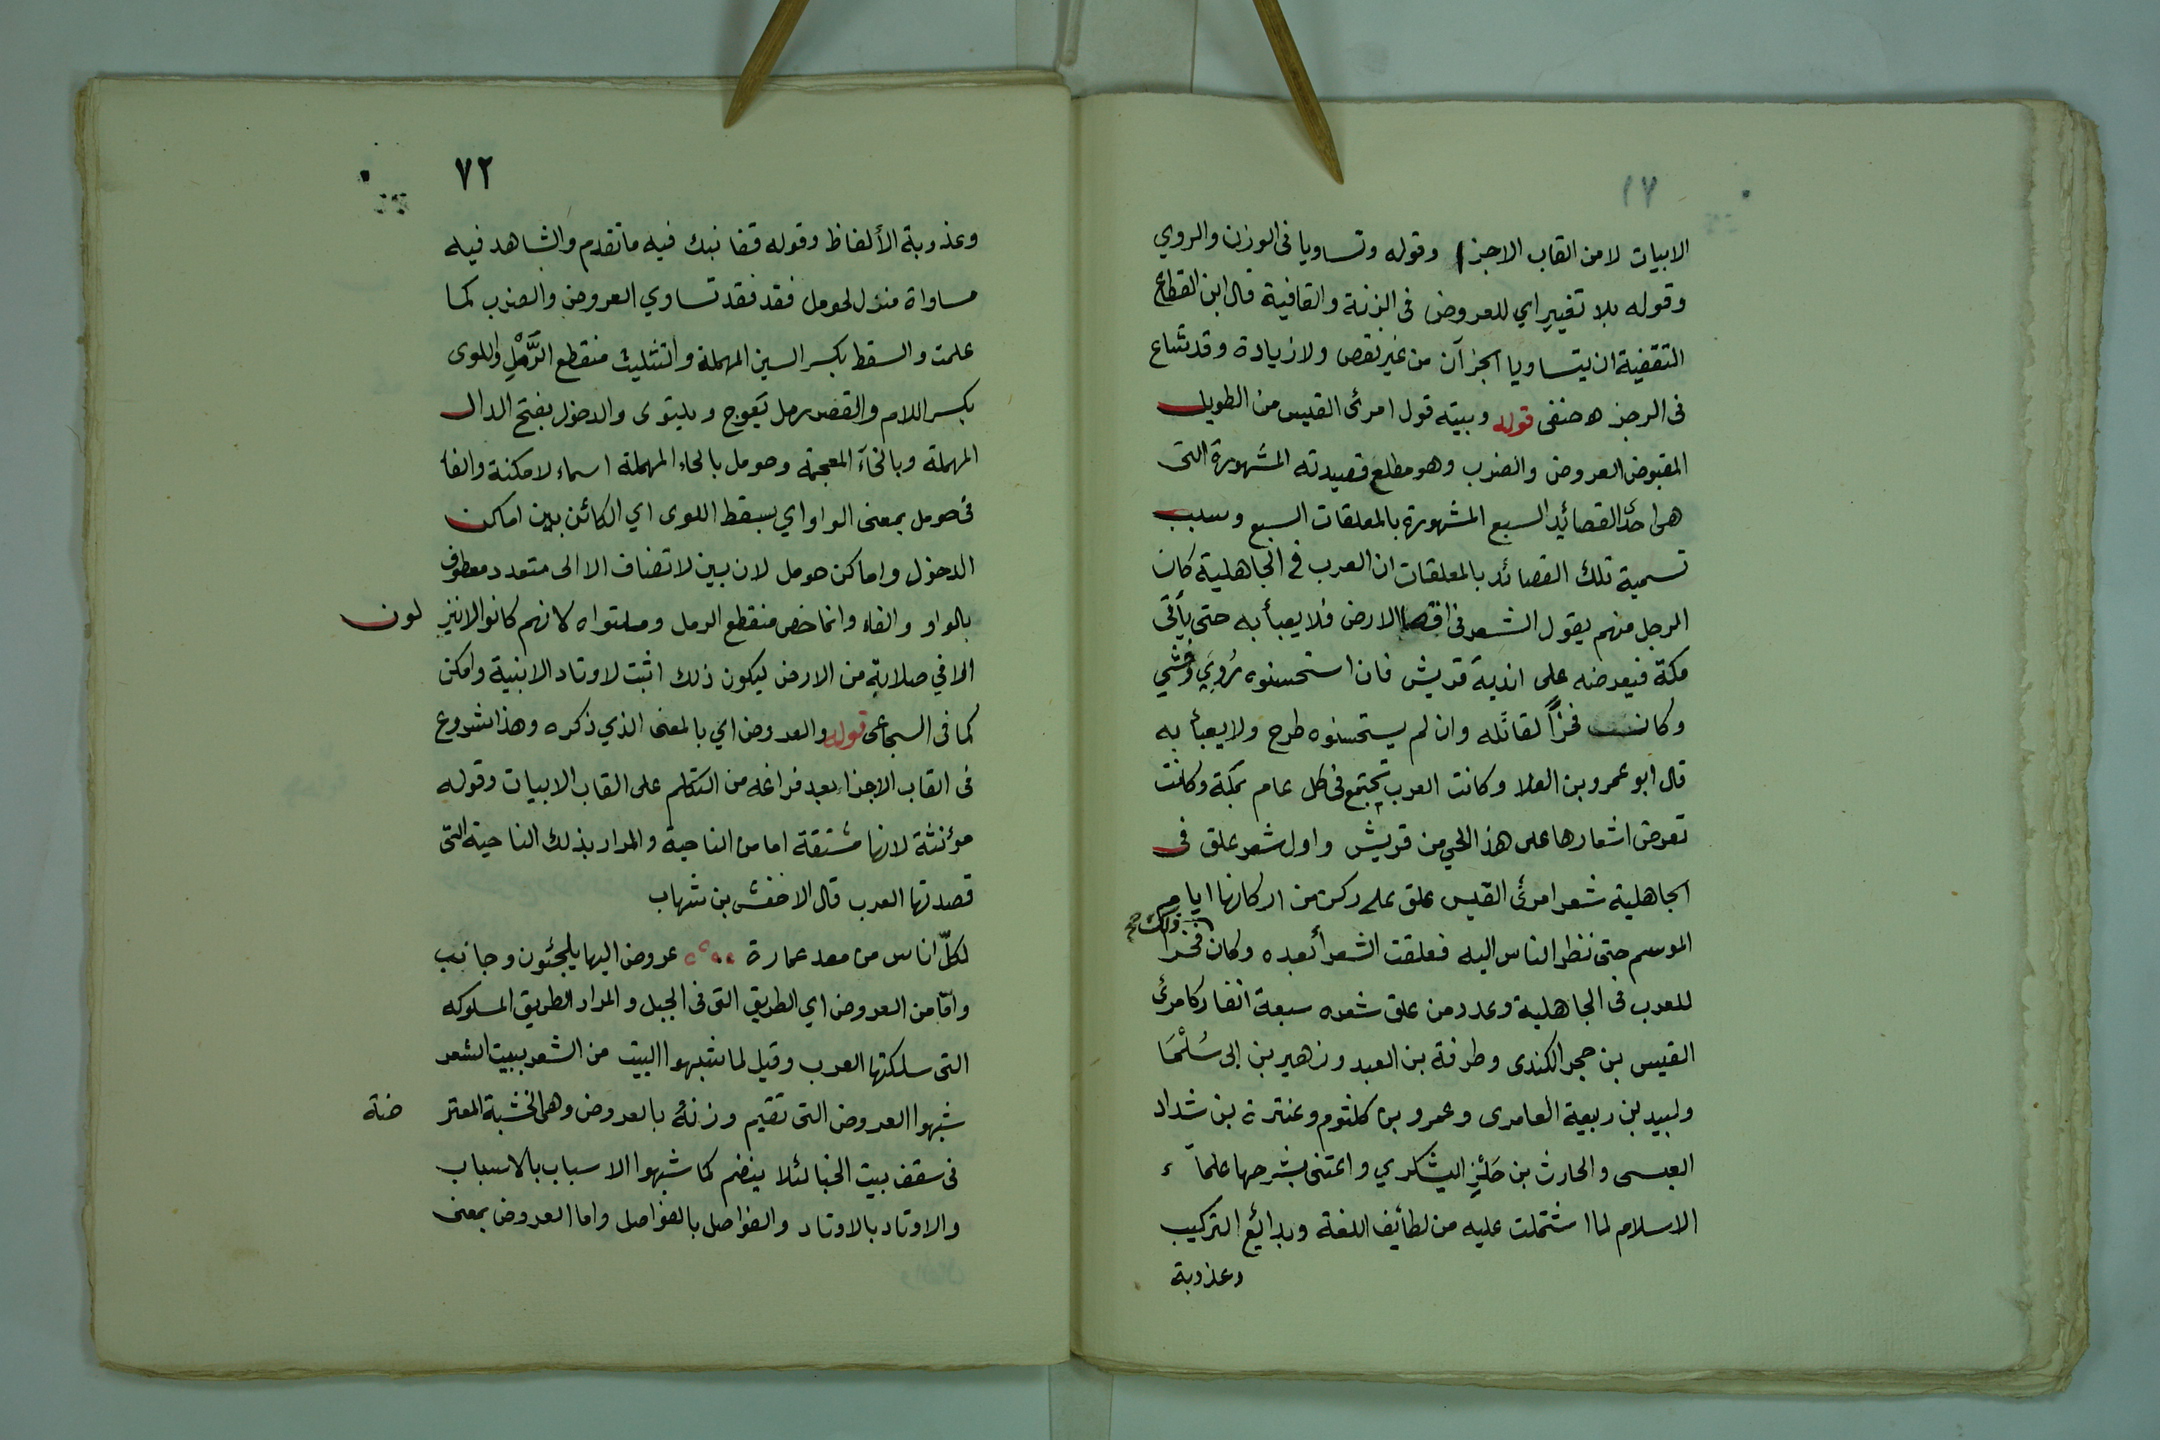 الابيات لا من القاب الاجزا وقوله وتساويا فى الوزن والروي
وقوله بلا تغيير اي للعروض فى الزنة والقافية قال ابن القطاع
التقفية ان يتساويا الجزآن من غير نقص ولا زيادة وقد شاع
فى الرجز ه حنفى قوله وبيته قول امرئ القيس من الطويل
المقبوض العروض والضرب وهو مطلع قصيدته المشهورة التى
هى احد القصائد السبع المشهورة بالمعلقات السبع وسبب
تسمية تلك القصائد بالمعلقات ان العرب فى الجاهلية كان
الرجل منهم يقول الشعر فى اقصا الارض فلا يعبأ به حتى يأتى
مكة فيعرضه على اندية قريش فان استحسنوه رُوِيَ
وكان فخراً لقائله وان لم يستحسنوه طرح ولا يعبأ به
قال ابو عمرو بن العلا وكانت العرب تجتمع فى كل عام بمكة وكانت
تعرض اشعارها على هذا الحي من قريش واول شعر علق فى
الجاهلية شعر امرئ القيس علق على ركن من اركانها ايام
الموسم حتى نظر الناس اليه فعلقت الشعرأ بعده وكان ذلك صح فخرا
للعرب فى الجاهلية وعدد من علق شعره سبعة انفار كامرئ
القيس بن حجر الكندى وطرفة بن العبد وزهير بن ابى سُلْمَا
ولبيد بن ربيعة العامرى وعمرو بن كلثوم وعنترة بن شداد
العبسى والحارث بن حلئز اليشكري واعتنى بشرحها علمآء
الاسلام لما اشتملت عليه من لطائف اللغة وبدائع التركيب
وعذوبة
٧٢
وعذوبة الألفاظ وقوله قفا نبك فيه ما تقدم والشاهد فيه
مساواة منزل لحومل فقد فقد تساوي العروض والضرب كما
علمت والسقط بكسر السين المهملة والتثليث منقطع الرَّمْلِ واللوى
بكسر اللام والقصر رمل يَعوج ويلتوى والدخول بفتح الدال
المهملة وبالخآء المعجمة وحومل بالحاء المهملة اسماء لامكنة والفا
فى حومل بمعنى الواو اي بسقط اللوى اي الكائن بين اماكن
الدخول واماكن حومل لان بين لا تضاف الا الى متعدد معطوف
بالواو والفاء وانما خص منقطع الرمل وملتواه لانهم كانوا لا ينز لون
الا في صلابة من الارض ليكون ذلك اثبت لاوتاد الابنية وامكن
كما فى السجاعى قوله والعروض اي بالمعنى الذي ذكره وهذا شروع
فى القاب الاجزا بعد فراغه من التكلم على القاب الابيات وقوله
مؤنثة لانها مشتقة اما من الناحية والمراد بذلك الناحية التى
قصدتها العرب قال الاخفش بن شهاب
لكلّ اناس من معد عمارة عروض اليها يلجئون وجانب
وامّا من العروض اي الطريق التى فى الجبل والمراد الطريق المسلوكه
التى سلكتها العرب وقيل لما شبهوا البيت من الشعر ببيت الشعر
شبهوا العروض التى تقيم وزنهُ بالعروض وهى الخشبة المعتر ضة
فى سقف بيت الخبا لئلا ينضم كما شبهوا الاسباب بالاسباب
والاوتاد بالاوتاد والفواصل بالفواصل واما العروض بمعنى